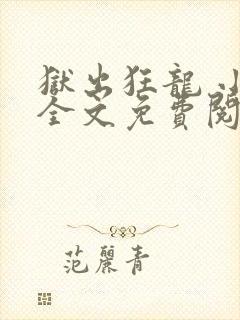 獄出狂龍 小
全文免費閱
范麗青